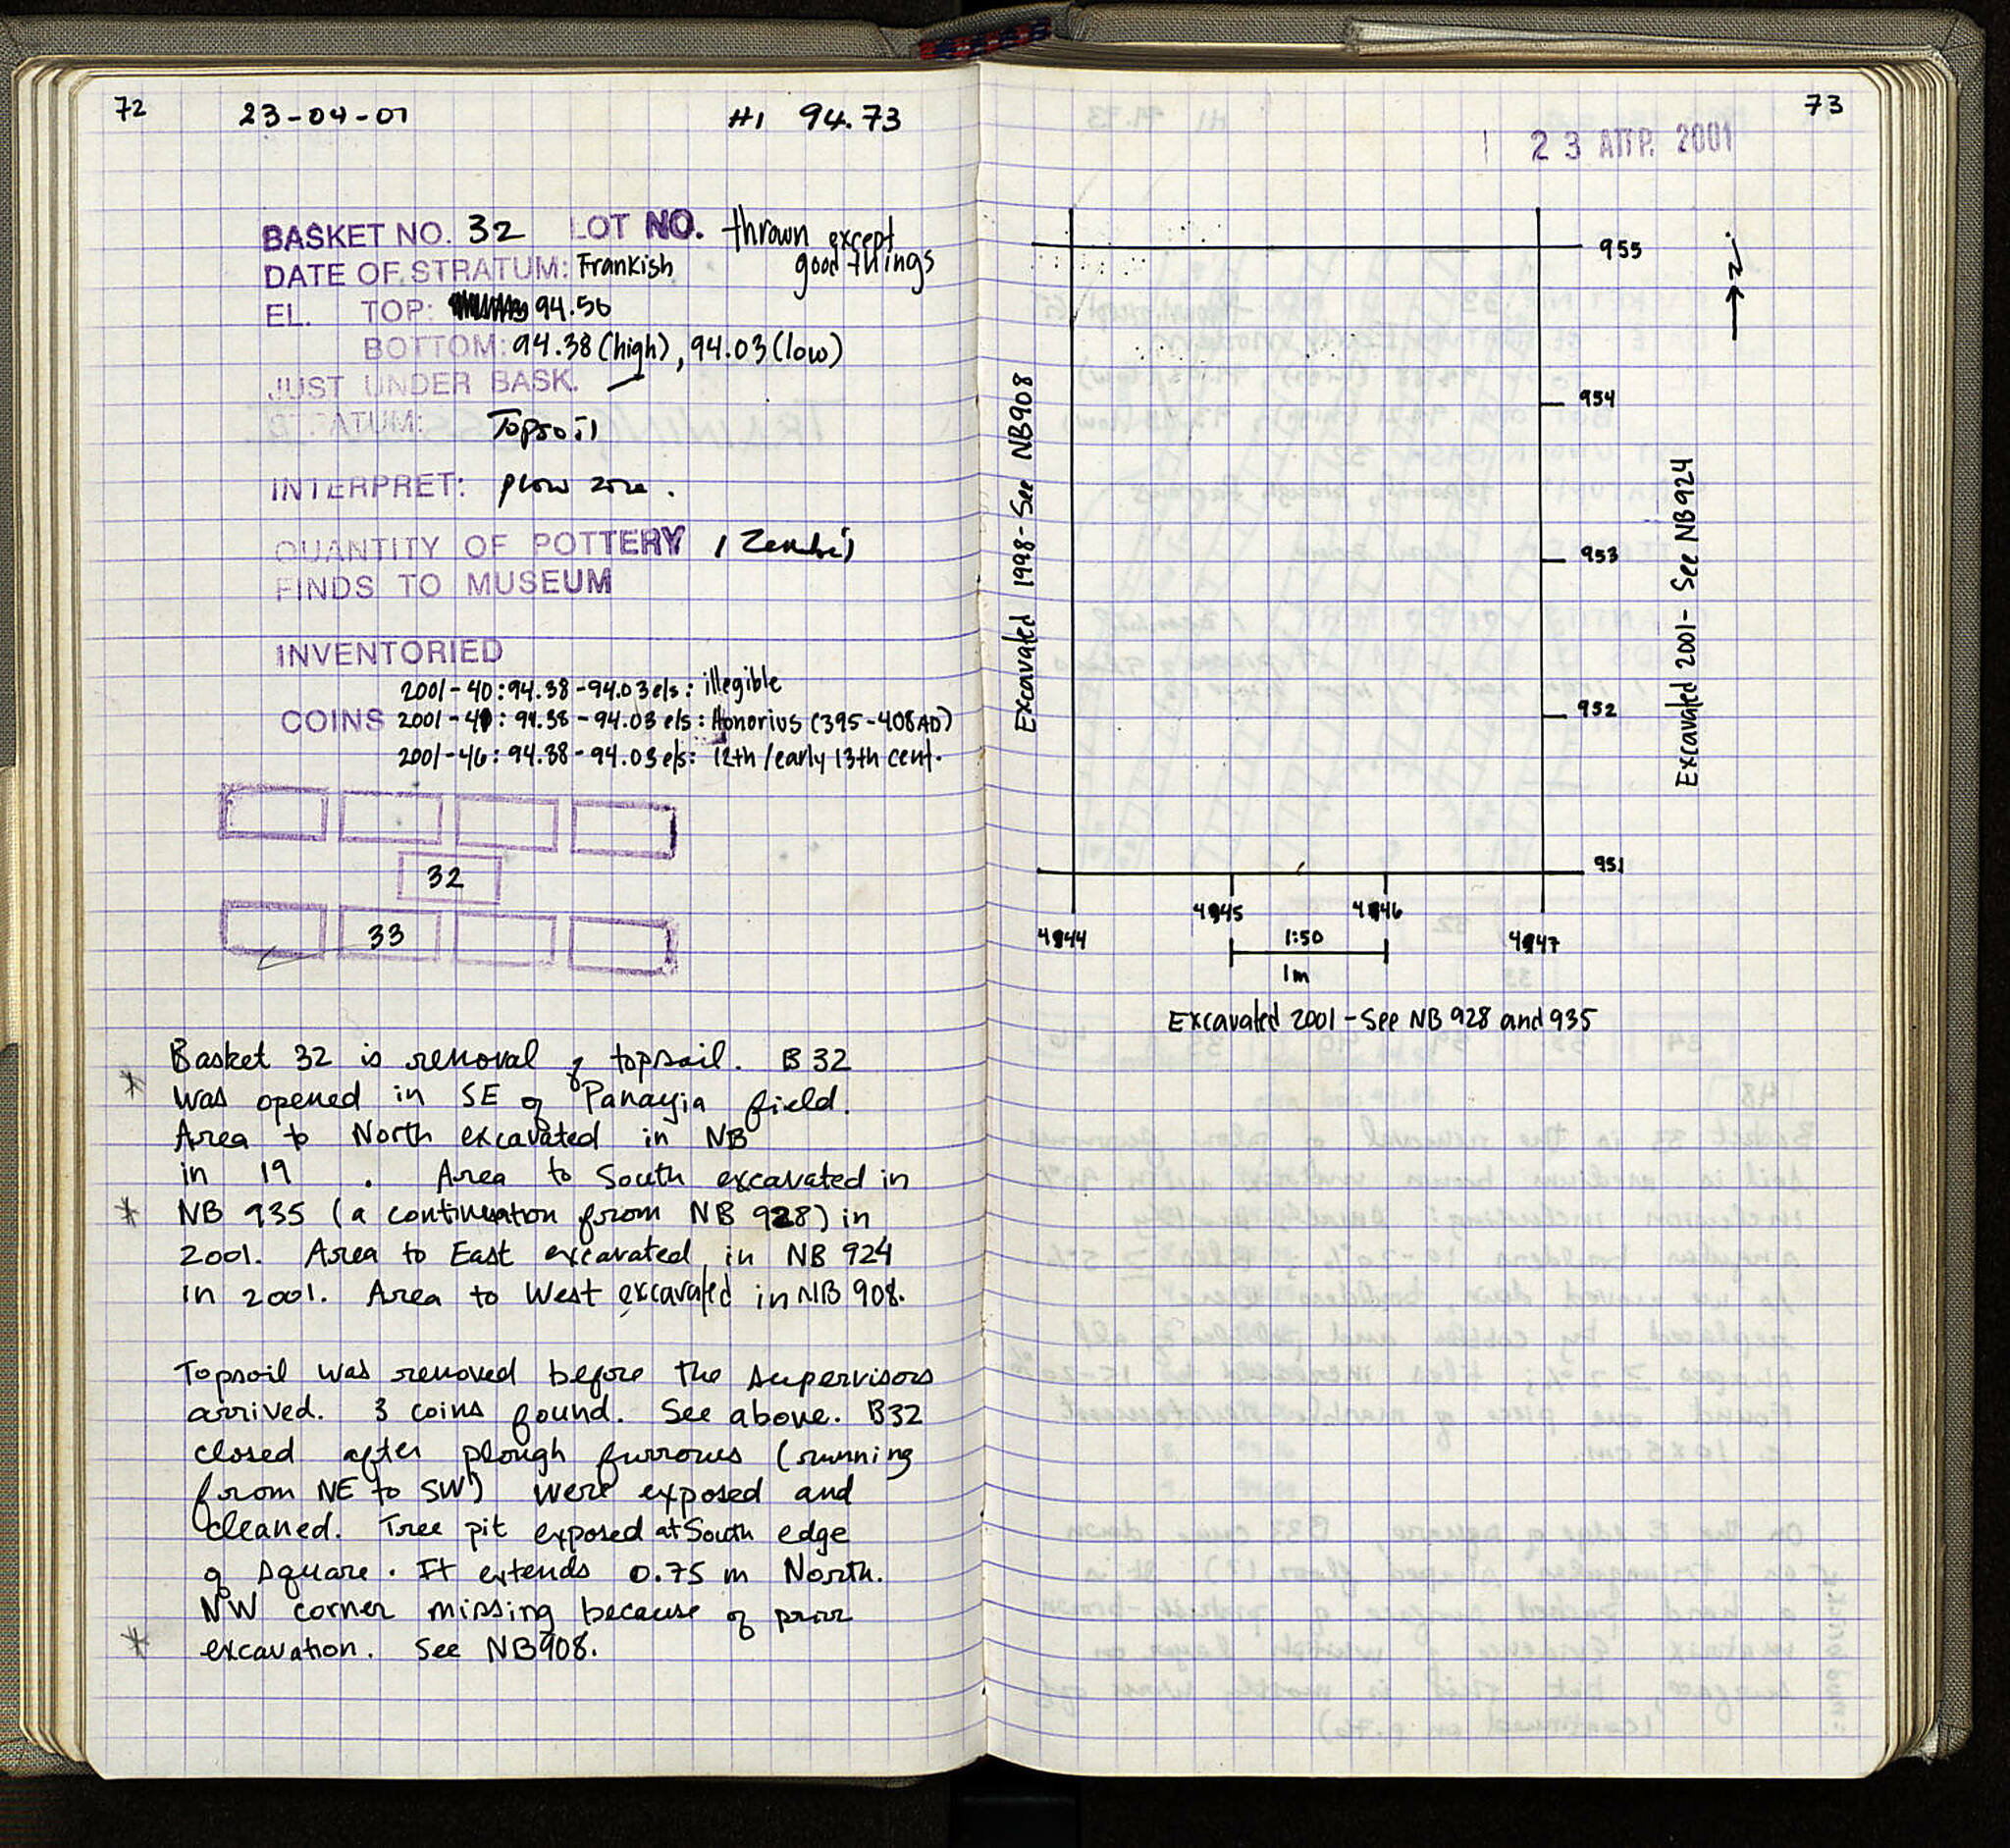 72 23-04-01 HI 94.73
BASKET NO. 32 LOT NO. thrown except
good things
DATE OF STRATUM: Frankish
EL. TOP: 94.56
BOTTOM: 94.38 (high), 94.03 (low)
JUST UNDER BASK. —
STRATUM: Topsoil
INTERPRET: plow zone.
QUANTITY OF POTTERY 1 Zembil
FINDS TO MUSEUM
INVENTORIED
2001-40: 94.38-94.03 els: illegible
COINS 2001-41: 94.38-94.03 els: Honorius (395-408 AD)
2001-46: 94.38-94.03 els: 12th/early 13th cent.
32
33
Basket 32 is removal of topsoil. B32
* was opened in SE of Panayia field.
Area to North excavated in NB
in 19 . Area to South excavated in
* NB 935 (a continuaton from NB 928) in
2001. Area to East excavated in NB 924
in 2001. Area to West excavated in NB 908.
Topsoil was removed before the supervisors
arrived. 3 coins found. See above. B32
closed after plough furrows (running
from NE to SW) were exposed and
cleaned. Tree pit exposed at South edge
of square. It extends 0.75 m North.
NW corner missing because of prior
* excavation. See NB908.
73
23 ΑΠΡ. 2001
N
955
954
953
952
951
Excavated 1998 - See NB908
Excavated 2001 - See NB924
4945 4946
4944 1:50 4947
1m
Excavated 2001 - See NB 928 and 935